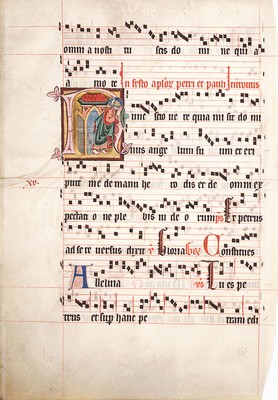 omnia nostri tu scis do mi ne qui a
a mo te In festo aplor petri et pauli Introitus
Nunc scio ve re quia mi sit do mi
nus ange lum su um et eri
xv. puit me de manu he ro dis et de omni ex
pectati o ne ple bis iu de o rum ps Et petrus
ad se re versus dixit v Gloria Constitues
Alleluia vs Tu es pe
trus et sup hanc pe tram edi